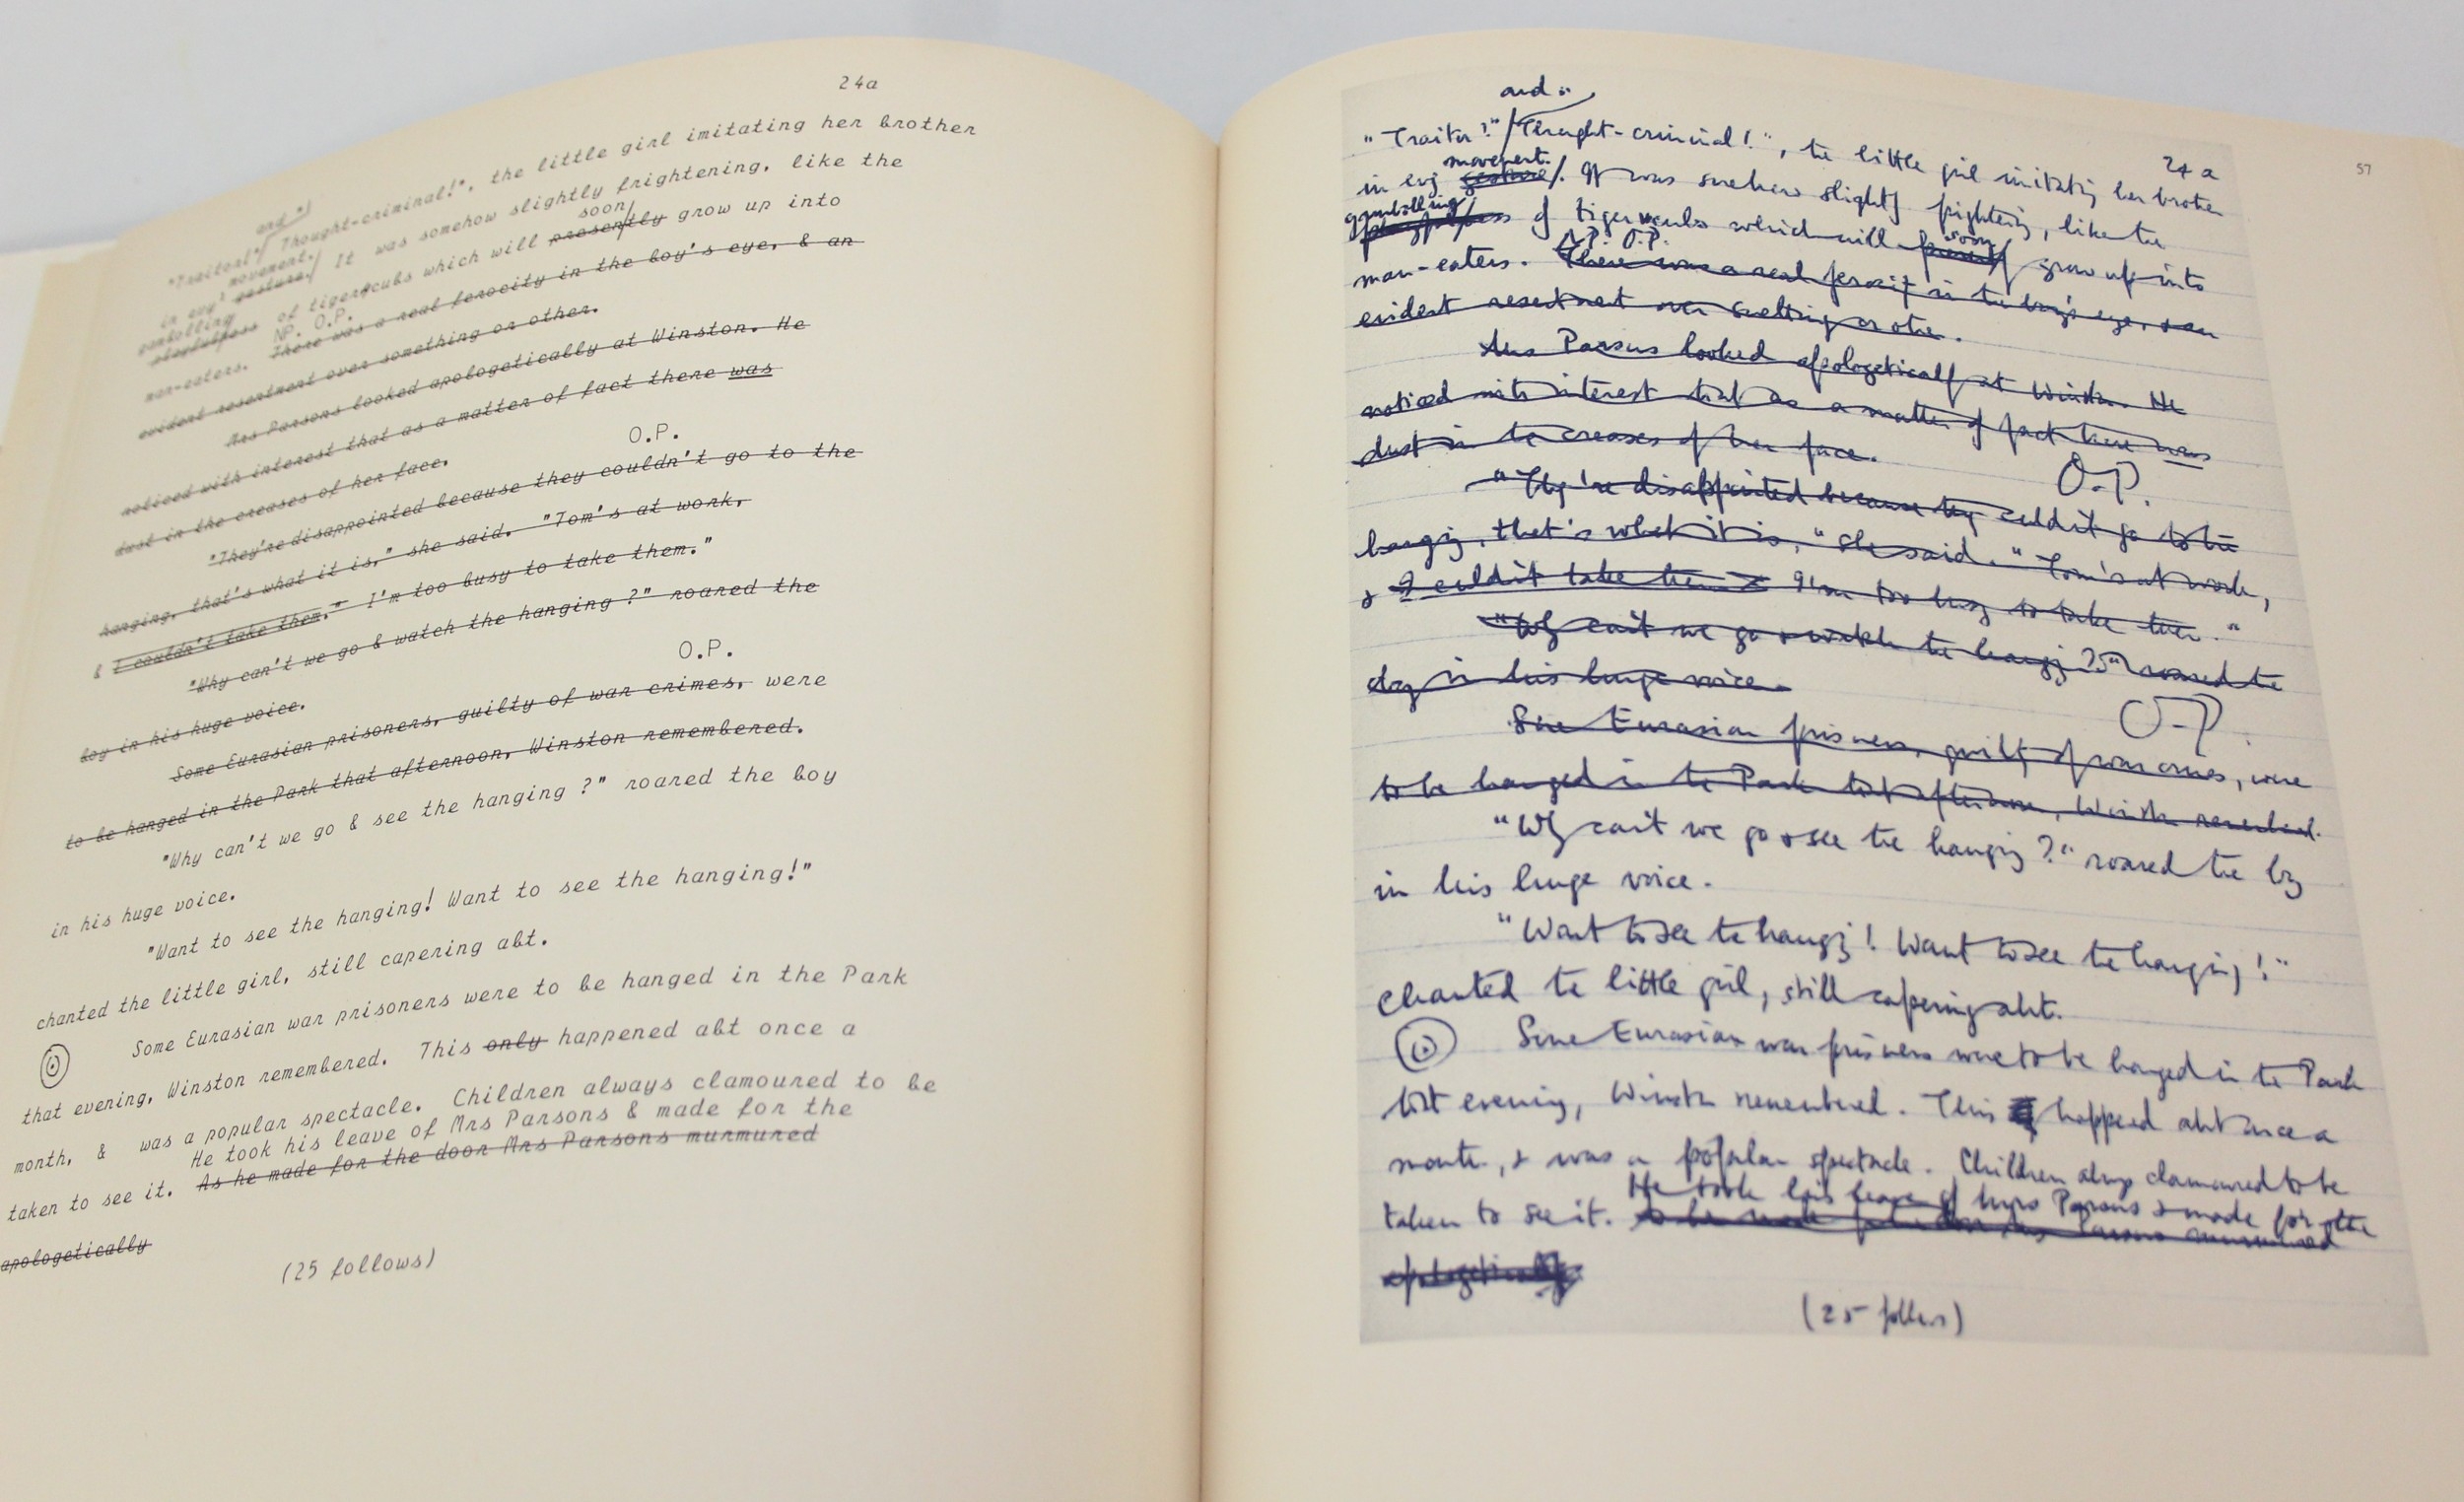 24a
and "
"Traitor!" Thought-criminal!", the little girl imitating her brother
movement.
in evy gesture. It was somehow slightly frightening, like the
gambolling soon
playfulness of tiger cubs which will presently grow up into
NP. O.P.
man-eaters. There was a real ferocity in the boy's eye, & an
evident resentment over something or other.
Mrs Parsons looked apologetically at Winston. He
noticed with interest that as a matter of fact there was
dust in the creases of her face.
O.P.
"They're disappointed because they couldn't go to the
hanging, that's what it is," she said. "Tom's at work,
& I couldn't take them." I'm too busy to take them."
"Why can't we go & watch the hanging ?" roared the
boy in his huge voice.
O.P.
Some Eurasian prisoners, guilty of war crimes, were
to be hanged in the Park that afternoon, Winston remembered.
"Why can't we go & see the hanging ?" roared the boy
in his huge voice.
"Want to see the hanging! Want to see the hanging!"
chanted the little girl, still capering abt.
Some Eurasian war prisoners were to be hanged in the Park
that evening, Winston remembered. This only happened abt once a
month, & was a popular spectacle. Children always clamoured to be
He took his leave of Mrs Parsons & made for the
taken to see it. As he made for the door Mrs Parsons murmured
apologetically
(25 follows)
57
and "
24a
"Traitor!" Thought-criminal!", the little girl imitating her brother
movement.
in evy gesture. It was somehow slightly frightening, like the
gambolling soon
playfulness of tiger cubs which will presently grow up into
N.P. O.P.
man-eaters. There was a real ferocity in the boy's eye, & an
evident resentment over something or other.
Mrs Parsons looked apologetically at Winston. He
noticed with interest that as a matter of fact there was
dust in the creases of her face.
O.P.
"They're disappointed because they couldn't go to the
hanging, that's what it is," she said. "Tom's at work,
& I couldn't take them I'm too busy to take them."
"Why can't we go & watch the hanging ?" roared the
boy in his huge voice.
O.P.
Some Eurasian prisoners, guilty of war crimes, were
to be hanged in the Park that afternoon, Winston remembered.
"Why can't we go & see the hanging ?" roared the boy
in his huge voice.
"Want to see the hanging! Want to see the hanging!"
chanted the little girl, still capering abt.
Some Eurasian war prisoners were to be hanged in the Park
that evening, Winston remembered. This happened abt once a
month, & was a popular spectacle. Children always clamoured to be
He took his leave of Mrs Parsons & made for the
taken to see it. As he made for the door Mrs Parsons murmured
apologetically
(25 follows)